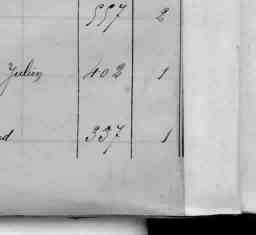 557 2
Julien 402 1
d. 337 1